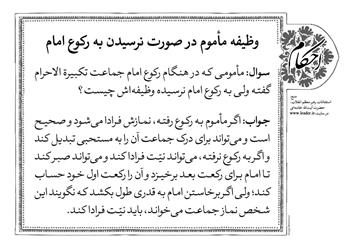 وظیفه مأموم در صورت نرسیدن به رکوع امام
سوال: مأمومی که در هنگام رکوع امام جماعت تکبیرة الاحرام
گفته ولی به رکوع امام نرسیده وظیفه‌اش چیست؟
جواب: اگر مأموم به رکوع رفته، نمازش فرادا می‌شود و صحیح
است و می‌تواند برای درک جماعت آن را به مستحبی تبدیل کند
و اگر به رکوع نرفته، می‌تواند نیّت فرادا کند و می‌تواند صبر کند
تا امام برای رکعت بعد برخیزد و آن را رکعت اول خود حساب
کند؛ ولی اگر برخاستن امام به قدری طول بکشد که نگویند این
شخص نماز جماعت می‌خواند، باید نیّت فرادا کند.
احکام
منبع:
استفتائات رهبر معظم انقلاب،
حضرت آیت‌الله خامنه‌ای
در سایت www.leader.ir